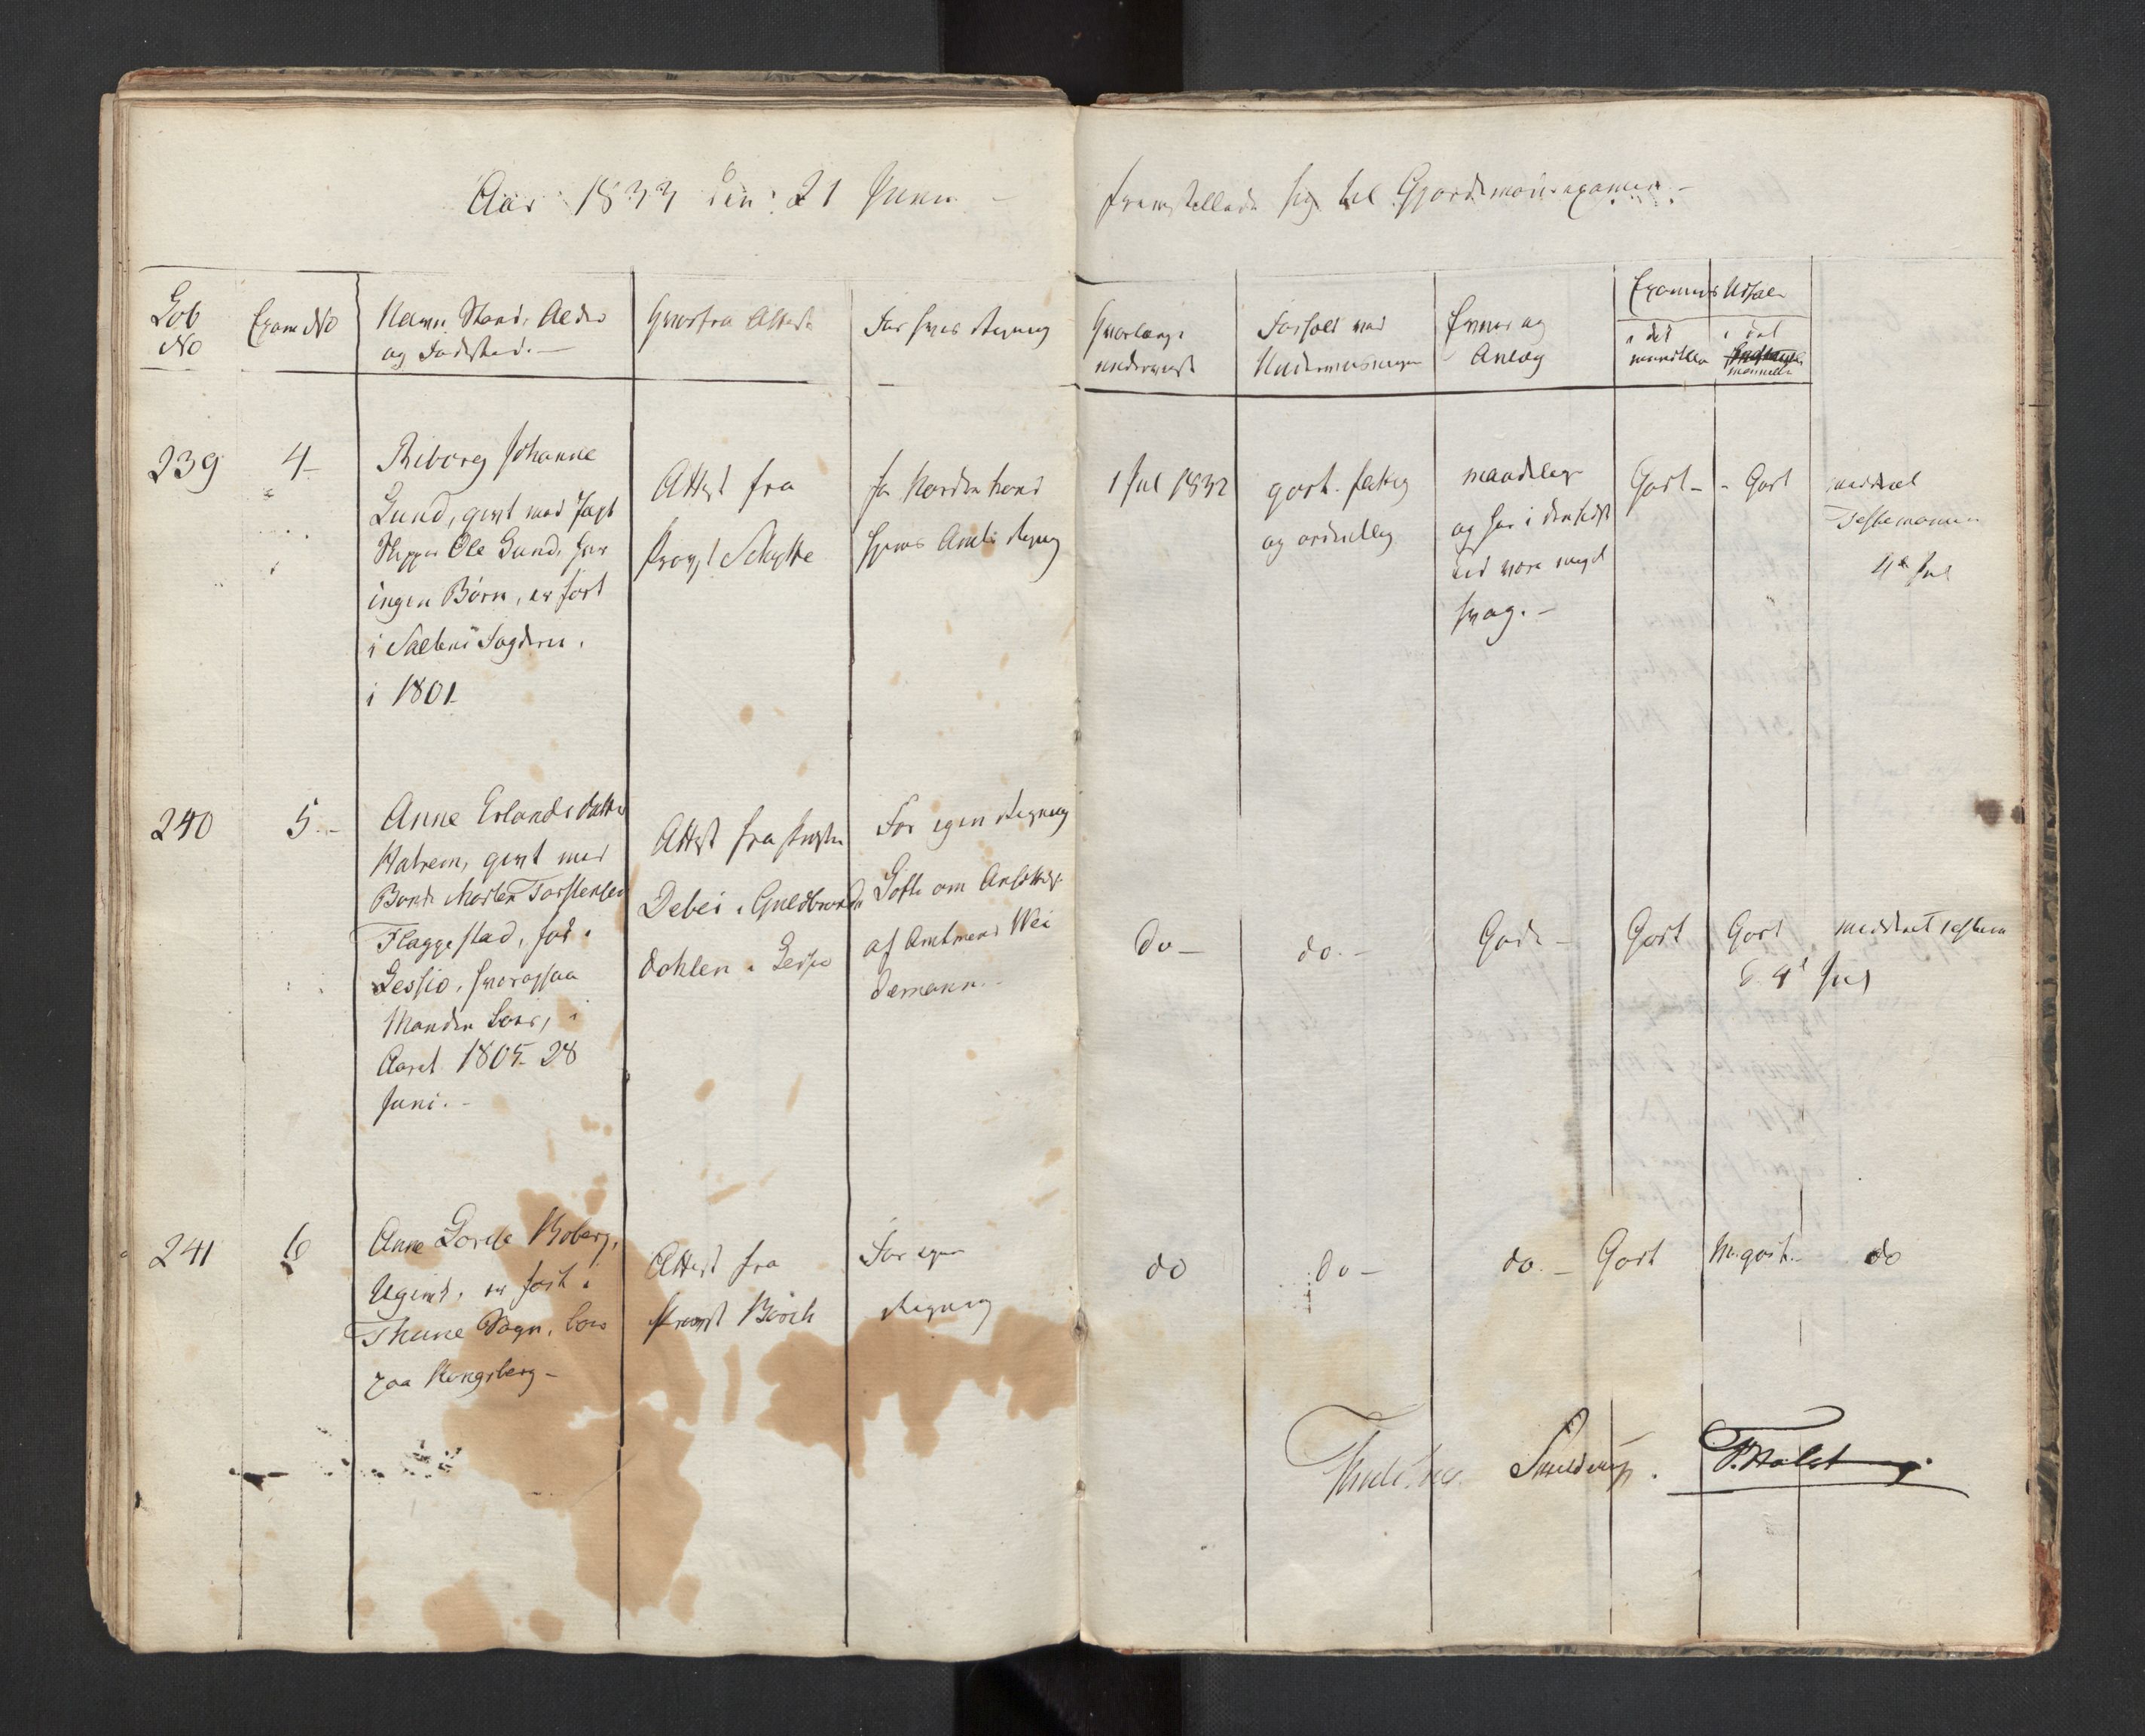 Aar 1833 den 21 Juni –
fremstillede sig til Gjordemoderexamen –
Løb
No
Exam No
Navn, Stand, Alder
og Fødested. –
Hvorfra Attest
For hvis Regning
Hvorlænge
underviist
Forhold ved
Underviisningen
Evner og
Anlæg
Examens Udfald
i det
mundtlige
i det
manuelle
239
4
Riborg Johanne
Lund, givt med Jagt
Skipper Ole Lund, har
ingen Børn, er født
i Saltens Fogderie.
i 1801
Attest fra
Provst Schytte
for Nordre Trond
hjems Amts Regng
1 Jul 1832
godt. flittig
og ordentlig
maadelige
og har i den sidste
tid været meget
svag. –
Godt –
Godt
meddeelt
Testemonium
4de Jul
240
5 –
Anne Erlandsdatter
Hatrem, givt med
Bonde Morten Torstensen
Flaggestad, fød i
Lessjø, hvorogsaa
Manden boer, i
Aaret 1805 28
Juni. –
Attest fra Præsten
Debes i Guldbrands
dahlen i Lessjø
For egen Regning
Løfte om Ansættelse
af Amtmand Wei
demann. –
Do –
do. –
Gode –
Godt
Godt
meddeelt Testem
d. 4 Jul
241
6
Anne Lovise Boberg,
Ugivt, er født i
Thune Sogn, boer
paa Kongsberg –
Attest fra
Provst Barch
For egen
Regning
do
do –
do. –
Godt
M. godt.
do
Thulstrup.
Skjelderup.
F. Holst